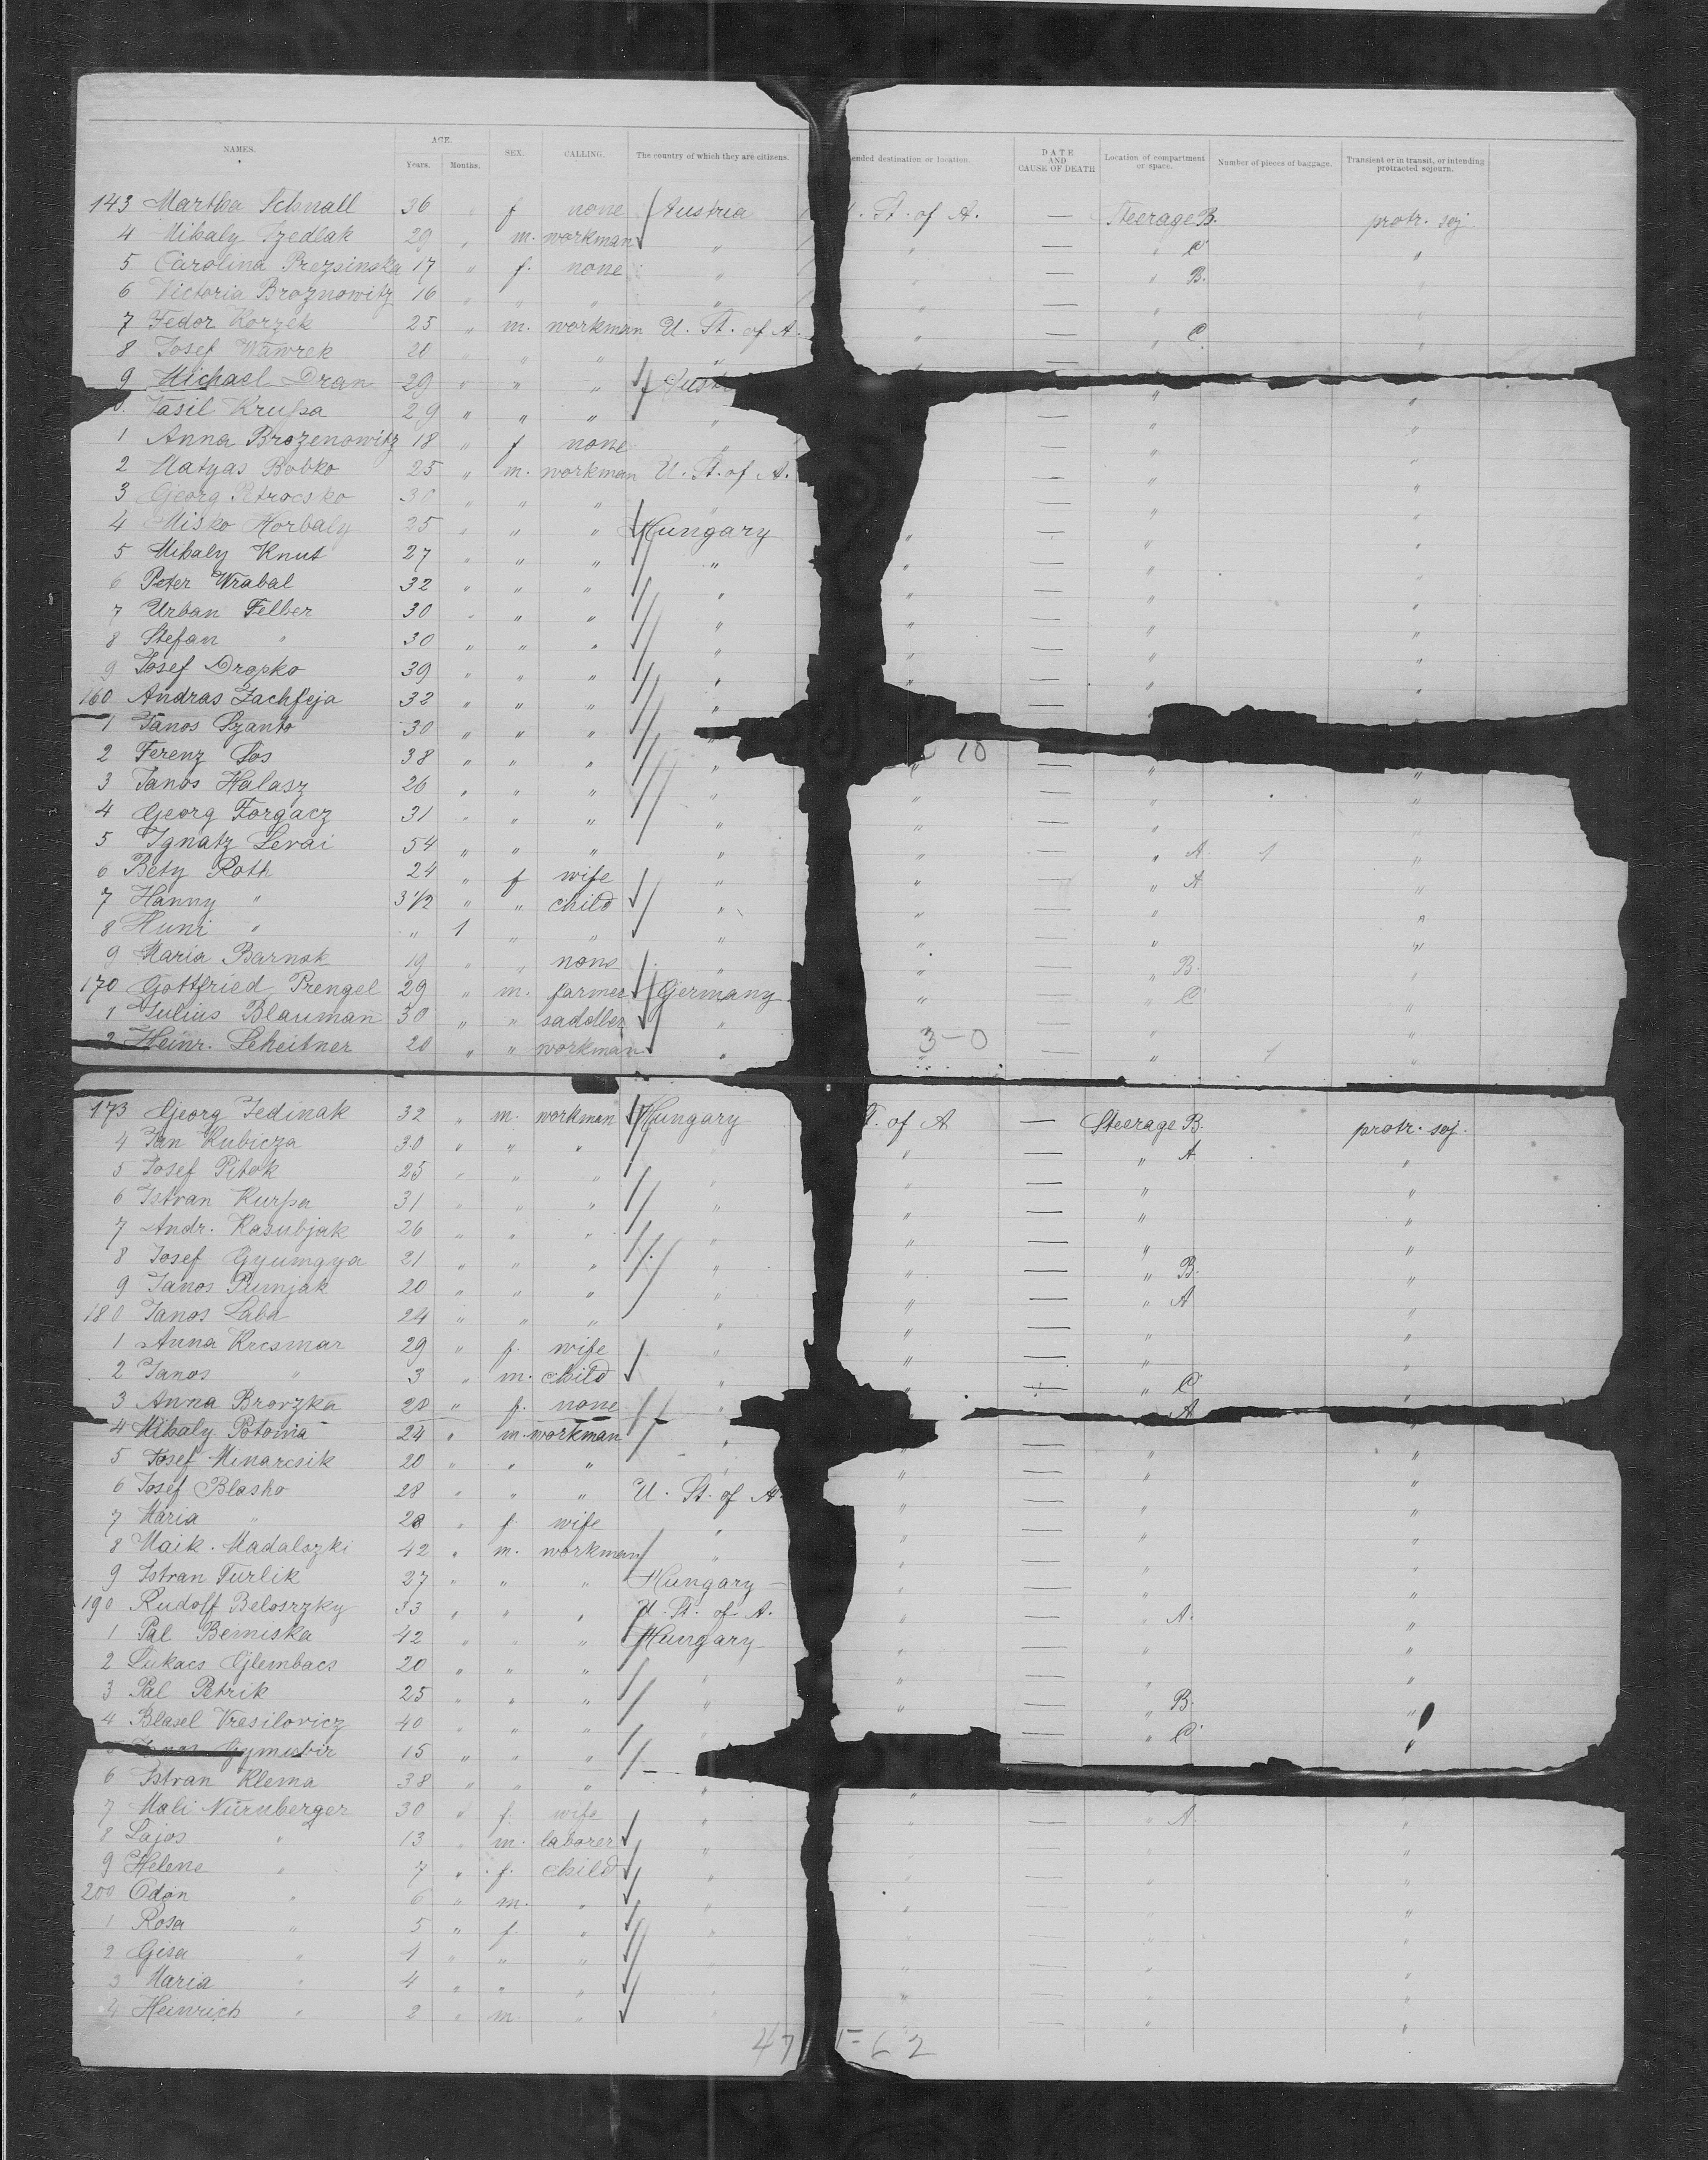 NAMES. AGE. Years. Months. SEX. CALLING. The country of which they are citizens. ended destination or location. DATE AND CAUSE OF DEATH Location of compartment or space. Number of pieces of baggage. Transient or in transit, or intending protracted sojourn.
143 Martha Schnall 36 " f none Austria . St. of A. — Steerage B. protr. soj.
4 Mihaly Szedlak 29 " m. workman " " — " C "
5 Carolina Prezsinska 17 " f. none " — " B. "
6 Victoria Broznowitz 16 " " " " " — " "
7 Fedor Korzek 25 " m. workman U. St. of A. " — " C "
8 Josef Wawrek 20 " " " " " — "
9 Michael Dran 29 " " " Aust " "
Vasil Krupa 29 " " " " — " "
1 Anna Brozenowitz 18 " f none " — " "
2 Matyas Bobko 25 " m. workman U. St. of A. — " "
3 Georg Petrocsko 30 " " " " — " "
4 Misko Horbaly 25 " " " Hungary " — " "
5 Mihaly Knut 27 " " " " " — " "
6 Peter Wrabal 32 " " " " " — " "
7 Urban Felber 30 " " " " " — " "
8 Stefan " 30 " " " " " — " "
9 Josef Dropko 39 " " " " " — " "
160 Andras Zachfeja 32 " " " " —
1 Janos Szanto 30 " " " " 10 —
2 Ferenz Sos 38 " " " " " — " "
3 Janos Halasz 26 " " " " " — " "
4 Georg Forgacz 31 " " " " " — " "
5 Ignatz Levai 54 " " " " " — " A 1 "
6 Bety Roth 24 " f wife " " — " A "
7 Hanny " 3 1/2 " " child " " — " "
8 Huni " " 1 " " " " — " "
9 Maria Barnok 19 " " none " " — " B. "
170 Gottfried Prengel 29 " m. farmer Germany " — " C "
1 Julius Blauman 30 " " saddler " 3-0 — " "
2 Heinr. Scheitner 20 " " workman " " — " 1 "
173 Georg Jedinak 32 " m. workman Hungary . of A — Steerage B. protr. soj.
4 Jan Kubicza 30 " " " " " — " A "
5 Josef Pitok 25 " " " " " — " "
6 Istvan Kurpa 31 " " " " " — " "
7 Andr. Kasubjak 26 " " " " " — " "
8 Josef Gyumgya 21 " " " " " — " B. "
9 Janos Pumjak 20 " " " " " — " A "
180 Janos Laba 24 " " " " " — " "
1 Anna Krcsmar 29 " f. wife " " — " "
2 Janos " 3 " m. child " " — " C "
3 Anna Brorzka 28 " f. none " A
4 Mihaly Potoma 24 " m. workman " " — " "
5 Josef Minarcsik 20 " " " " " — " "
6 Josef Blasko 28 " " " U. St. of A. " — " "
7 Maria " 28 " f. wife " " — " "
8 Maik. Madalszki 42 " m. workman " " — " "
9 Istvan Turlik 27 " " " Hungary " — " "
190 Rudolf Belosrzky 33 " " " U. St. of A. " — " A. "
1 Pal Bemiska 42 " " " Hungary " — " "
2 Lukacs Glembacs 20 " " " " " — " "
3 Pal Petrik 25 " " " " " — " B. "
4 Blasel Vrasilovicz 40 " " " " — " C "
Gymesbir 15 " " "
6 Istvan Klema 38 " " " " " "
7 Mali Nürnberger 30 " f. wife " " — " A. "
8 Lajos " 13 " m. laborer " " — " "
9 Helene " 7 " f. child " " — " "
200 Odön " 6 " m. " " " — " "
1 Rosa " 5 " f. " " " — " "
2 Gisa " 4 " " " " — " "
3 Maria " 4 " " " " — " "
4 Heinrich " 2 " m. " " — " "
47 62